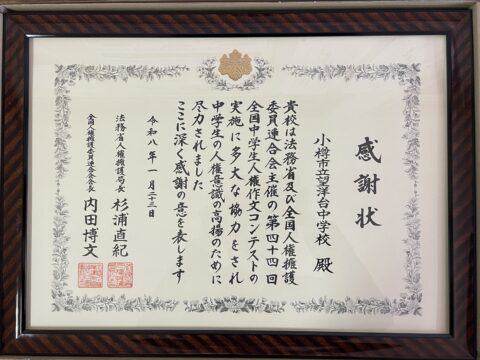 感謝状
小樽市立望洋台中学校 殿
貴校は法務省及び全国人権擁護
委員連合会主催の第四十四回
全国中学生人権作文コンテストの
実施に多大な協力をされ
中学生の人権意識の高揚のために
尽力されました
ここに深く感謝の意を表します
令和八年一月二十三日
法務省人権擁護局長 杉浦直紀
全国人権擁護委員連合会会長 内田博文